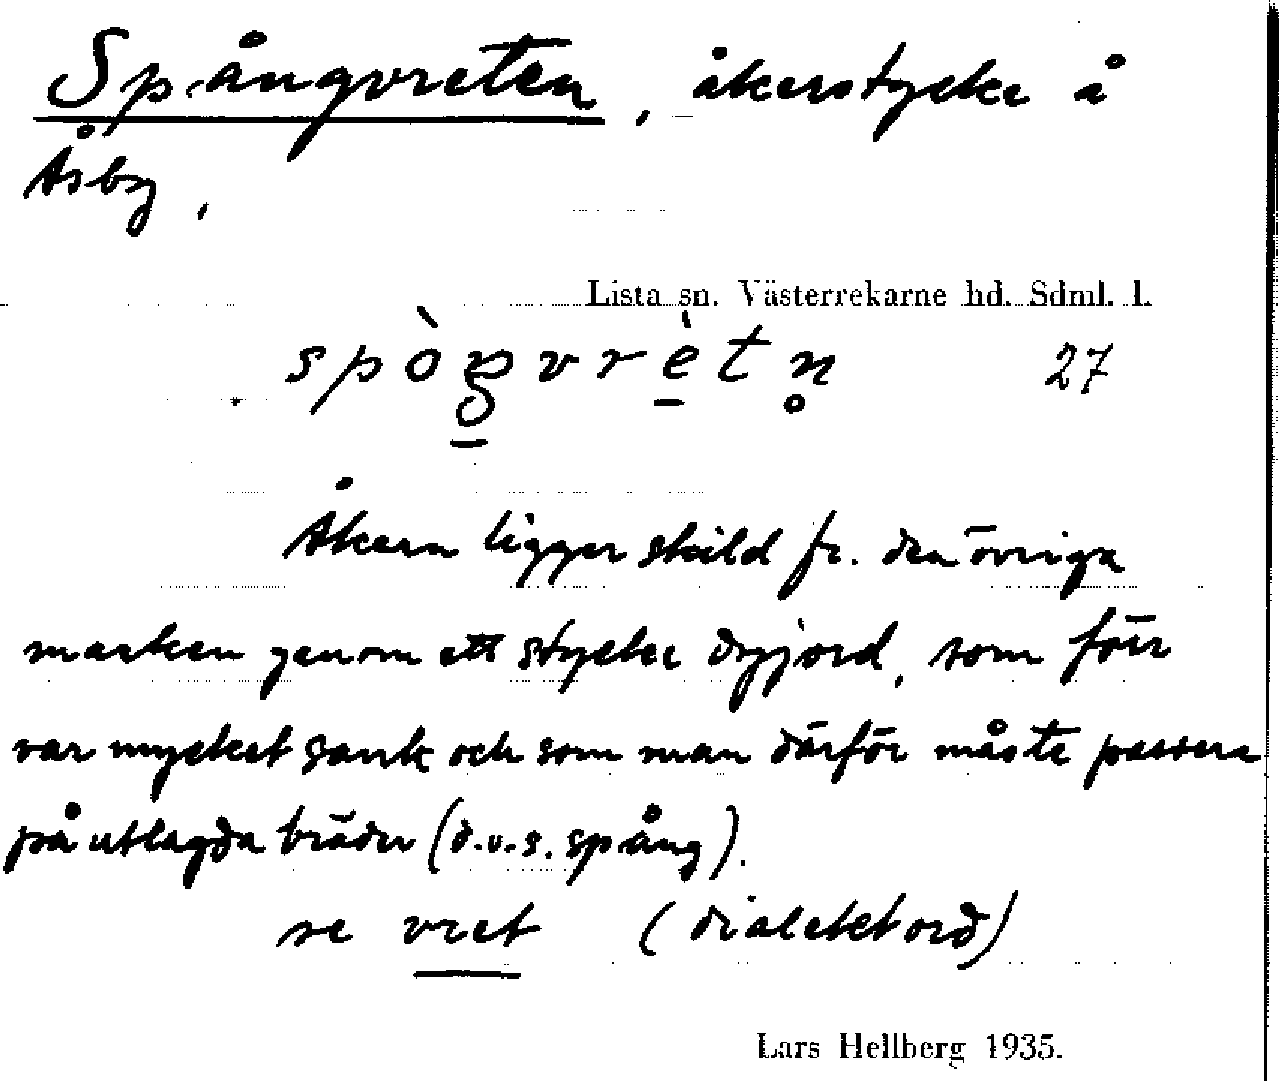 Spångvreten, åkerstycke å
Åsby,
Lista sn. Västerrekarne hd. Sdml. l.
spòŋvrètn̥ 27
Åkern ligger skild fr. den övriga
marken genom ett stycke dyjord, som förr
var mycket sank och som man därför måste passera
på utlagda bräder (d.v.s. spång).
se vret (dialektord)
Lars Hellberg 1935.